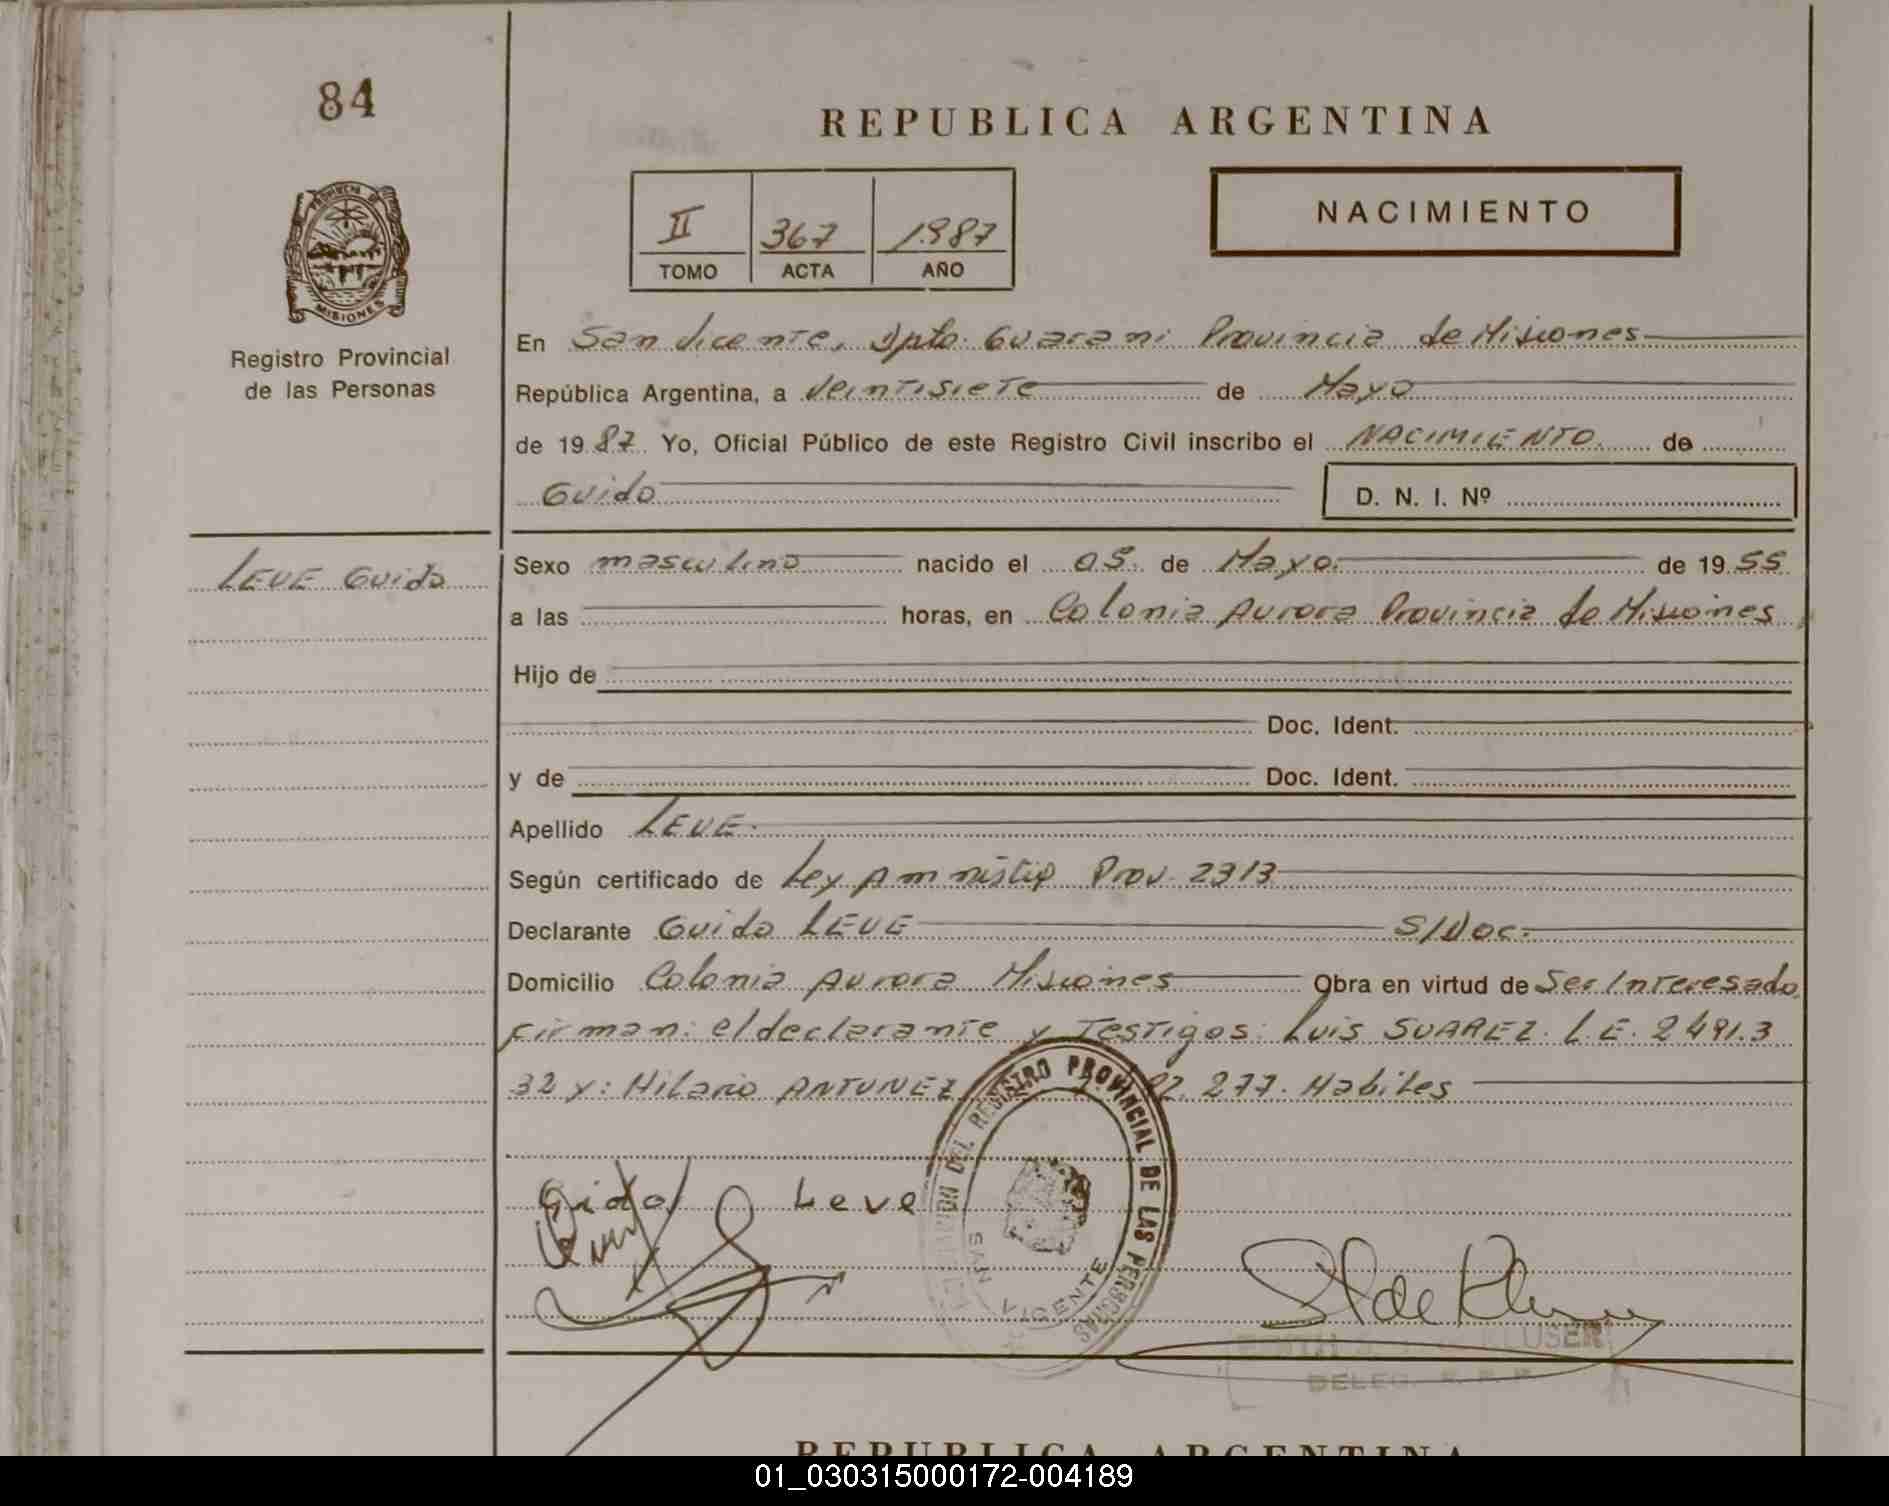 84
REPUBLICA ARGENTINA
II 367 1987
TOMO ACTA AÑO
NACIMIENTO
PROVINCIA DE MISIONES
Registro Provincial
de las Personas
En San Vicente, Dpto. Guarani Provincia de Misiones
República Argentina, a Veintisiete de Mayo
de 19 87. Yo, Oficial Público de este Registro Civil inscribo el NACIMIENTO. de
Guido D. N. I. Nº
LEVE Guido
Sexo masculino nacido el 05. de Mayo. de 19 55
a las horas, en Colonia Aurora Provincia de Misiones
Hijo de
Doc. Ident.
y de Doc. Ident.
Apellido LEVE.
Según certificado de Ley Amnistia Prov. 2313
Declarante Guido LEVE S/Doc.
Domicilio Colonia Aurora Misiones Obra en virtud de Ser Interesado
Firman: el declarante y Testigos: Luis SUAREZ. L.E. 2491.3
32 y: Hilario ANTUNEZ 277. Habiles
DEL REGISTRO PROVINCIAL DE LAS PERSONAS
SAN VICENTE
Gido Leve
KLUSER
DELEG. R. P. P.
REPUBLICA ARGENTINA
01_030315000172-004189